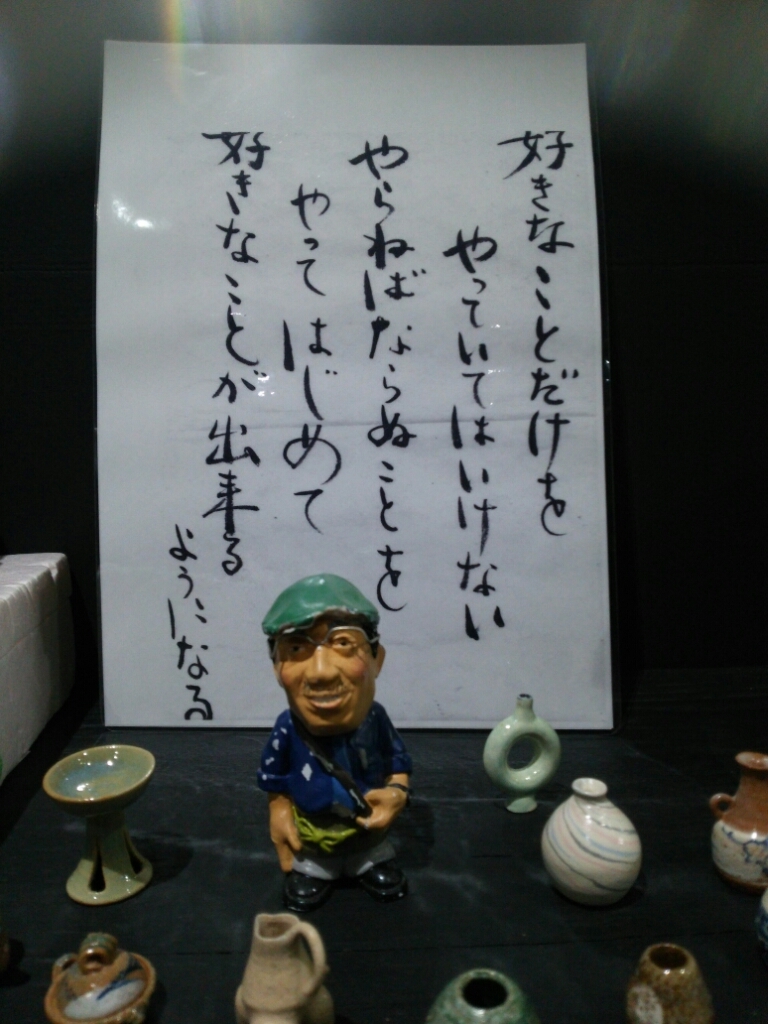 好きなことだけを
やっていてはいけない
やらねばならぬことを
やってはじめて
好きなことが出来る
ようになる